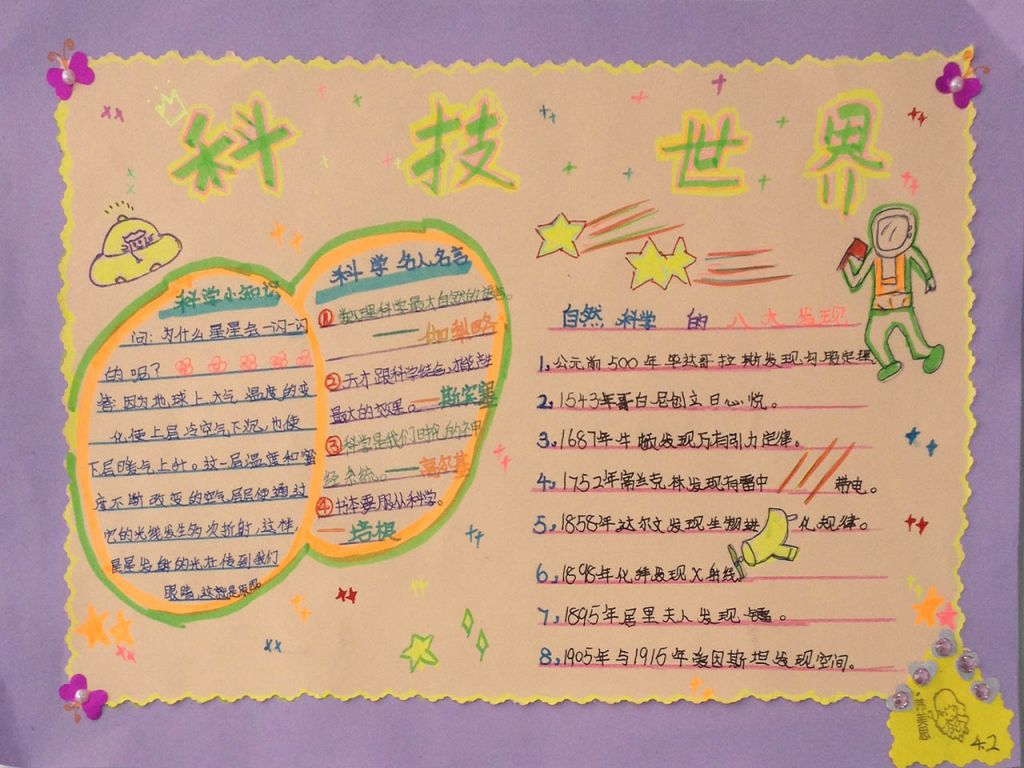 科技世界
科学小知识
问:为什么星星会一闪一闪
的呢?
答:因为地球上大气温度的变
化使上层冷空气下沉,也使
下层暖气上升。这一层温度和密
度不断改变的空气层层使通过
它的光线发生多次折射,这样,
星星发射的光在传到我们
眼睛,这就是原因
科学名人名言
①数理科学最大自然的语言。
——伽利略
②天才跟科学结合,才能产生
最大的效果。——斯宾塞
③科学是我们时代的神
经系统。——高尔基
④书本要服从科学。
——培根
自然科学的八大发现
1.公元前500年毕达哥拉斯发现勾股定理
2.1543年哥白尼创立日心说。
3.1687年牛顿发现万有引力定律。
4.1752年富兰克林发现有雷中带电。
5.1858年达尔文发现生物进化规律。
6.1898年伦琴发现X射线
7.1895年居里夫人发现镭。
8.1905年与1916年爱因斯坦发现空间。
美恩
4.2